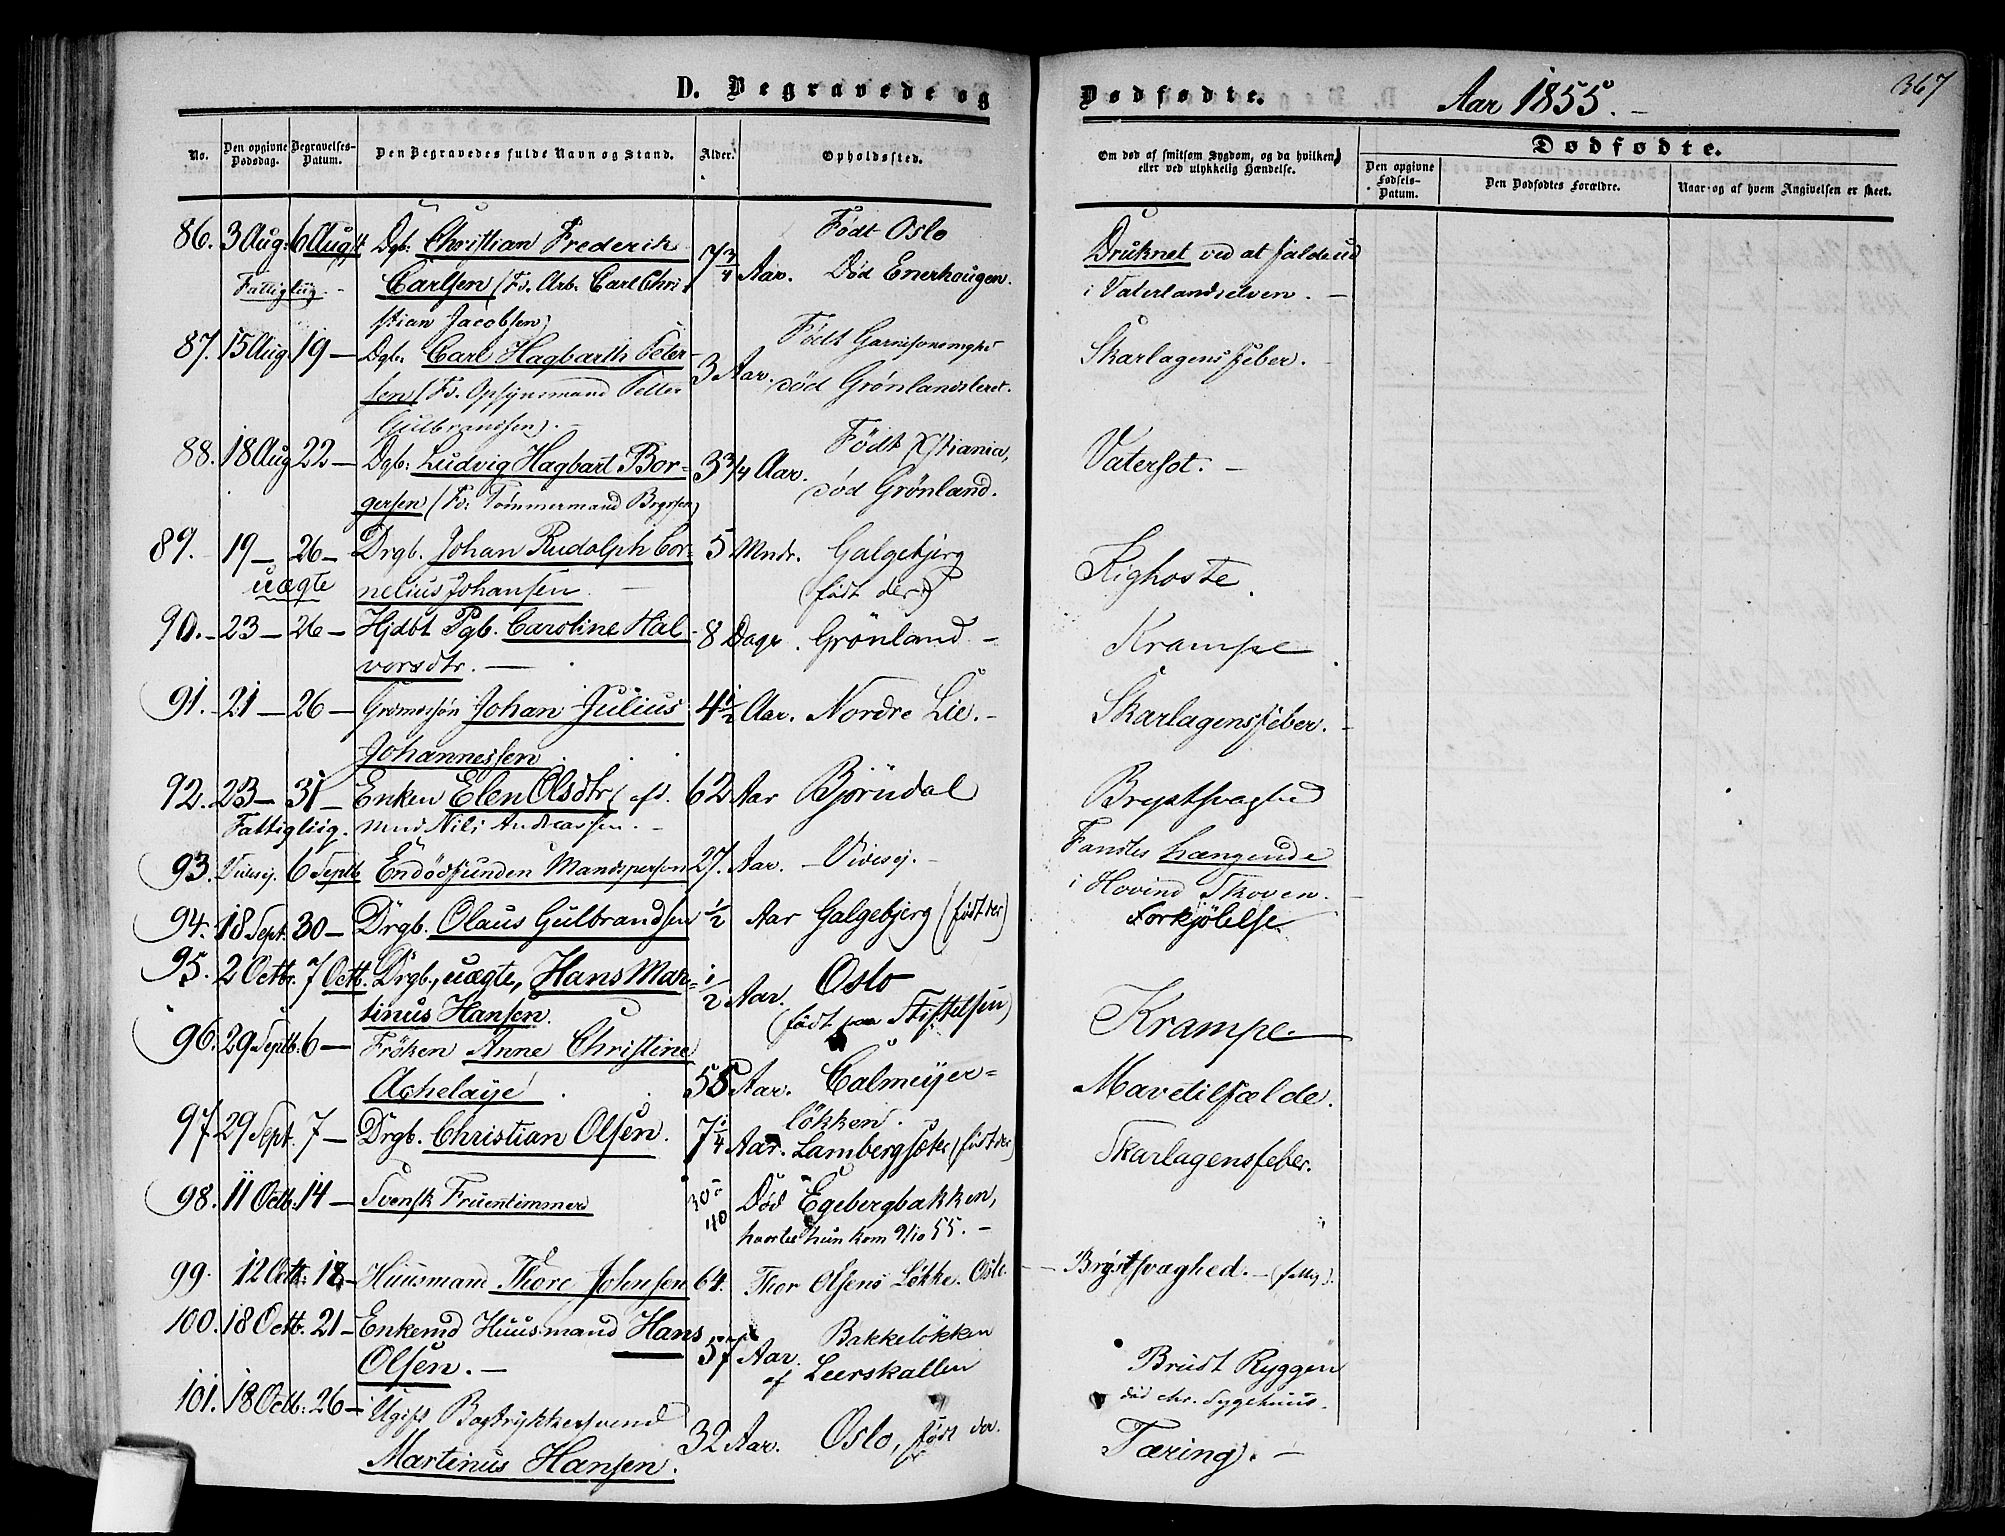 D. Begravede og Dødfødte. Aar 1855. 367
No. Den opgivne Dødsdag. Begravelses-Datum. Den Begravedes fulde Navn og Stand. Alder. Opholdssted. Om død af smitsom Sygdom, og da hvilken, eller ved ulykkelig Hændelse. Dødfødte.
Den opgivne Fødsels-Datum. Den Dødfødtes Forældre. Naar og af hvem Angivelsen er skeet.
86. 3 Aug: 6 Augst Dgb: Christian Frederik 7 3/4 Aar. Født Oslo Druknet ved at falde ud
Fattiglig. Carlsen (Fv. Arb. Carl Chri- Død Enerhougen. i Vaterlandselven. —
stian Jacobsen)
87. 15 Aug 19 — Dgb. Carl Hagbarth Peter- 3 Aar. Født Skarlagensfeber.
sen (Fv. Opsynsmand Petter død Grønlandsleret.
Gulbrandsen). —
88. 18 Aug 22 — Dgb: Ludvig Hagbart Bor- 3 3/4 Aar. Født Xstiania, Vatersot. —
gersen (Fv: Tømmermand død Grönland.
89. 19 — 26 — Drgb. Johan Rudolph Cor- 5 Mndr. Galgebjerg Kighoste.
uægte nelius Johansen (født der)
90. 23 — 26 — Hjdbt Pgb. Caroline Hal- 8 Dage. Grönland — Krampe
vorsdtr. —
91. 21 — 26 — Johan Julius 4 1/2 Aar. Nordre Lie. — Skarlagensfeber. —
Johannessen.
92. 23 — 31 — Enken Elen Olsdtr (eft. 62 Aar Björndal Brystsvaghed
Fattiglig. mnd Nils Andreassen. —
93. Uvissj. 6 Septb En dødfunden Mandsperson 27. Aar. — Vivesej. — Fandtes hængende
i Hovind Skoven. —
94. 18 Sept. 30 — Drgb. Olaus Gulbrandsen 1/2 Aar Galgebjerg (født der) Forkjölelse
95. 2 Octbr. 7 Octb. Drgb., uægte, Hans Mar- 1/2 Aar. Oslo Krampe
tinus Hansen. (født paa Stiftelsen)
96. 29 Septb. 6 — Fröken Anne Christine 55 Aar. Calmeyer- Mavetilfælde.
løkken.
97. 29 Sept. 7 — Drgb. Christian Olsen. 7 1/4 Aar. Lambergsæter (født der) Skarlagensfeber.
98. 11 Octb. 14 — Svensk Fruentimmer 30 - 40 Død Egebergbakken,
hvortil hun kom 9/10 55. —
99. 12 Octb: 18 — Huusmand Thore Johnsen 64. Thor Olsens Løkke. Oslo — Brystsvaghed. — (fattig).
100. 18 Octb. 21 — Enkemd Huusmand Hans 57 Aar. Bakkeløkken Brudt Ryggen
Olsen. — af Leerskallen død chr. Sygehuus.
101. 18 Octb: 26 — Ugift Bogtrykkersvend 32 Aar. Oslo, født der. Tæring). —
Martinus Hansen.